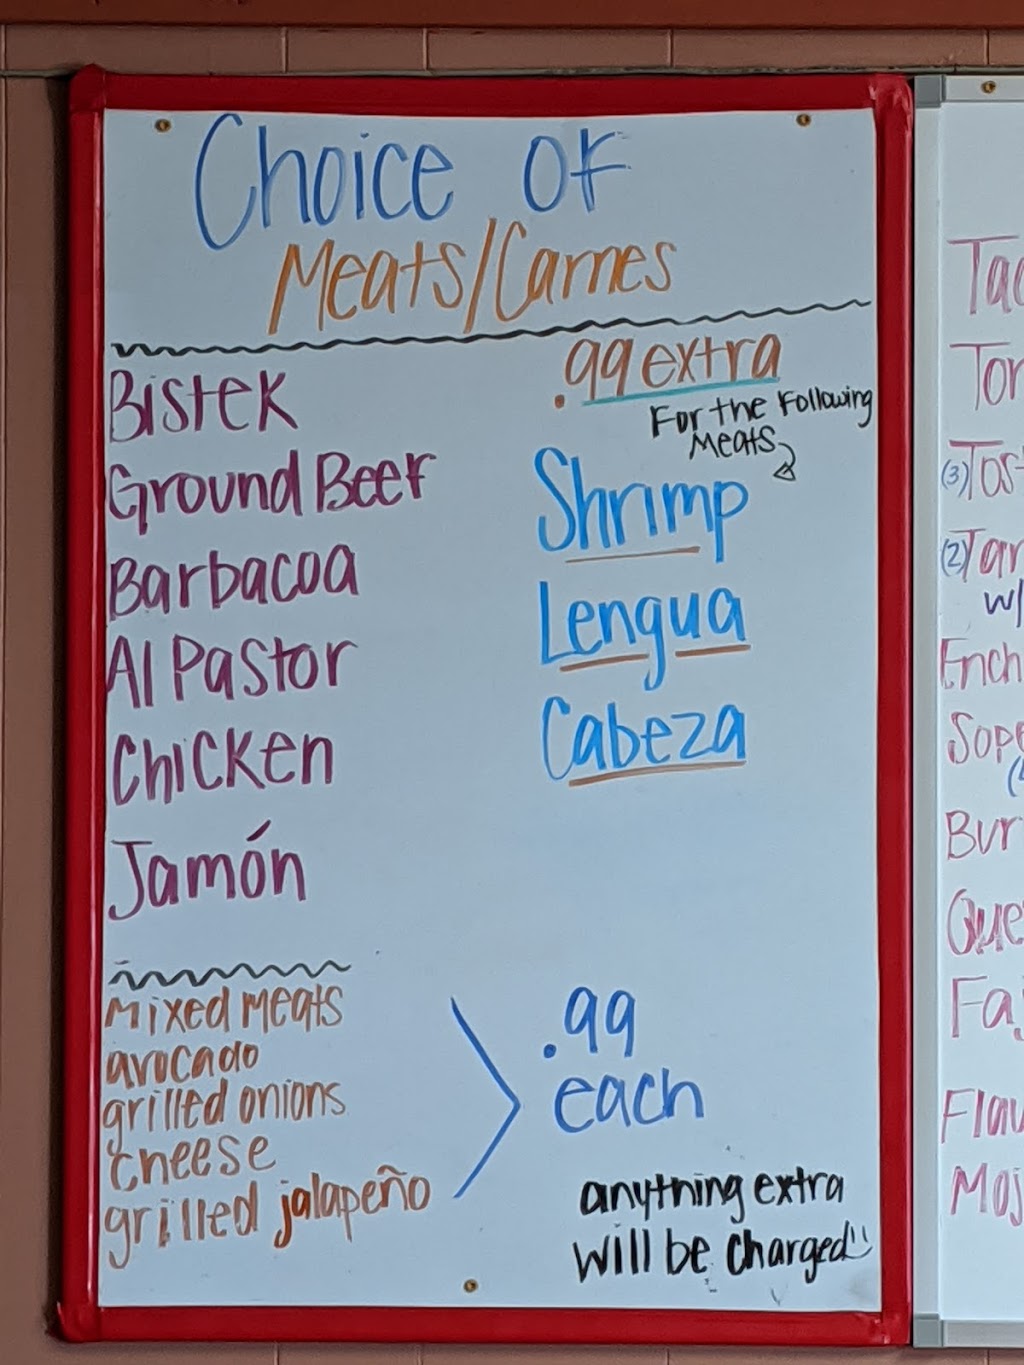 Choice of
Meats/Carnes
Bistek
Ground Beef
Barbacoa
Al Pastor
Chicken
Jamón
.99 extra
For the Following
Meats
Shrimp
Lengua
Cabeza
Mixed meats
avocado
grilled onions
cheese
grilled jalapeño
.99
each
anything extra
will be charged
Tac
Tor
(3) Tos
(2) Tam
w/
Ench
Sope
Bur
Que
Faj
Flau
Moj